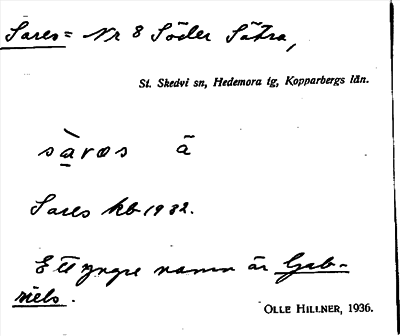 Sares = Nr 8 Söder Sätra,
St. Skedvi sn, Hedemora tg, Kopparbergs län.
sàrəs ã
Sares kb 1932.
Ett yngre namn är Gab-
riels.
OLLE HILLNER, 1936.